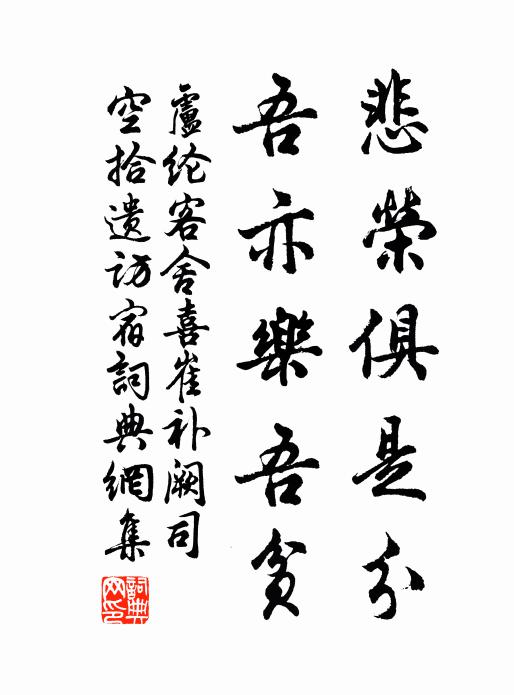 悲榮俱是分
吾亦樂吾貧
盧纶客舍喜崔补阙司
空拾遗訪宿詞典網集
詞典网印